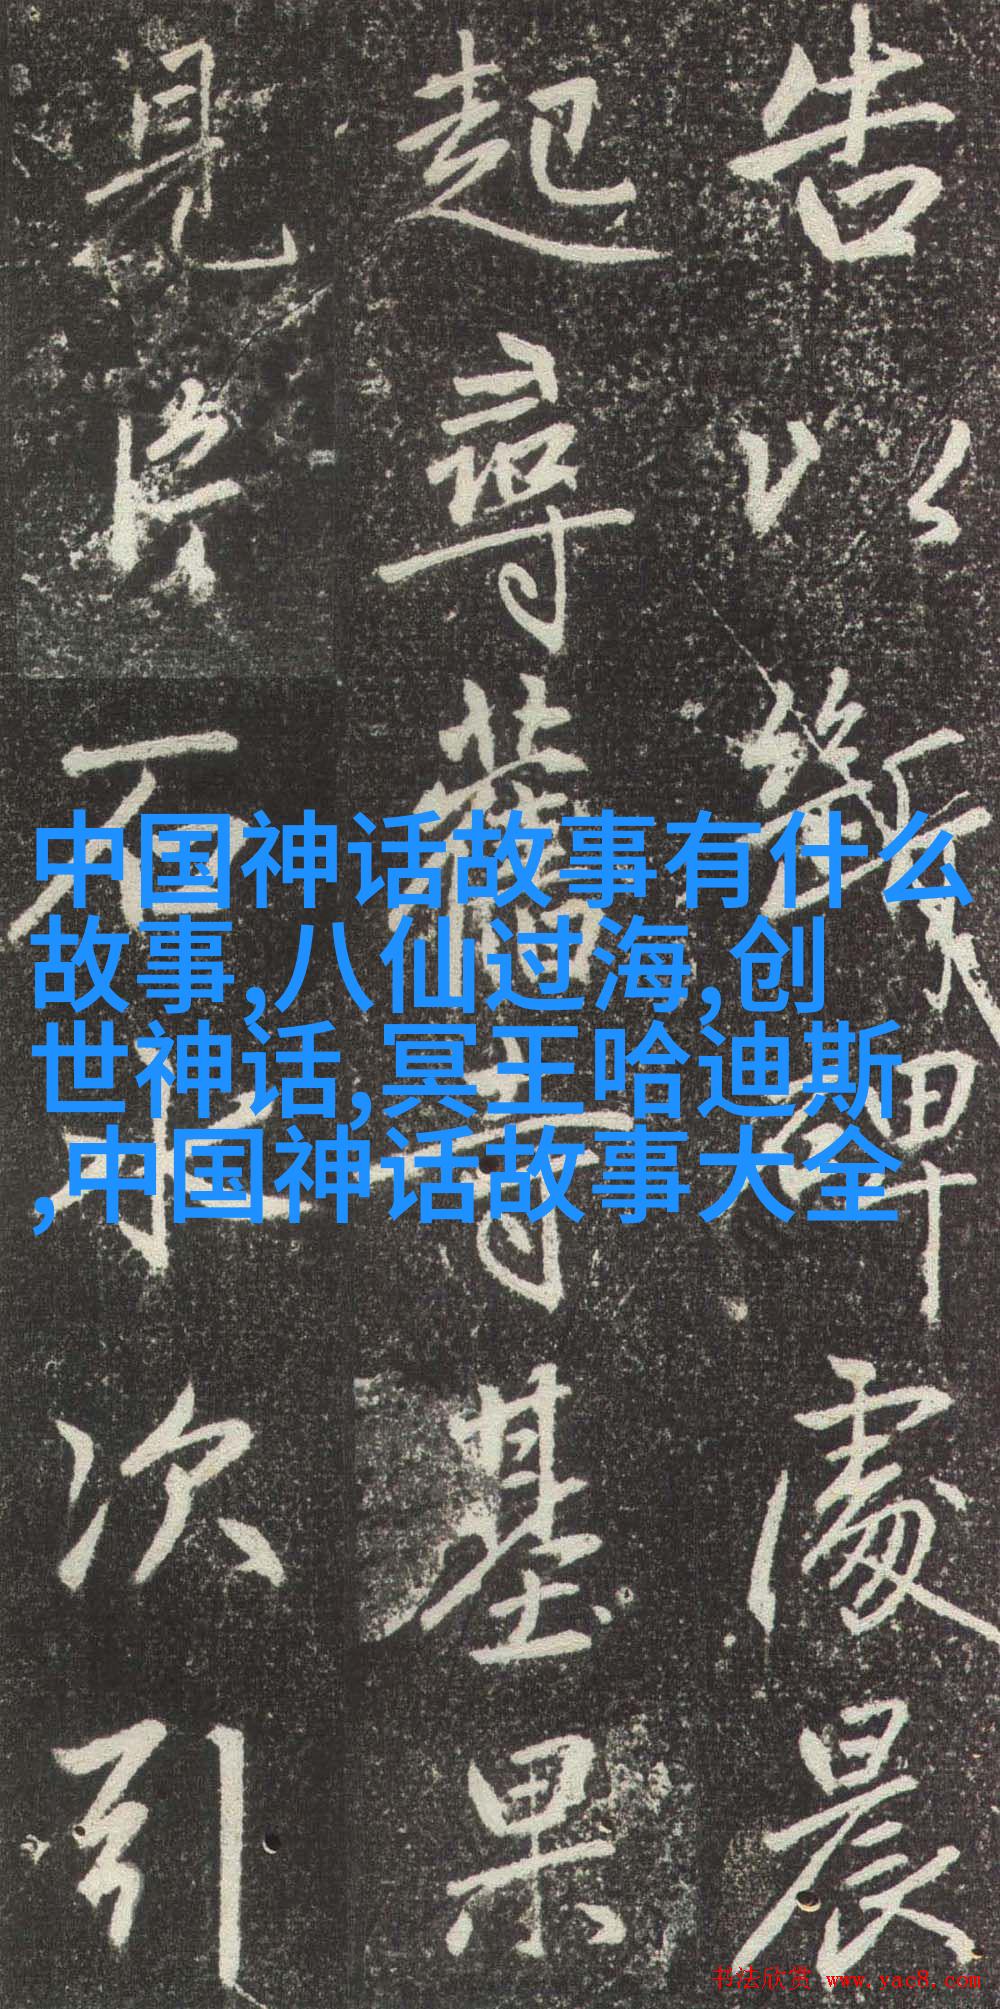 告以斷碑處晨
起尋舊寺基果
見片石水次引
中国神话故事有什么
故事,八仙过海,创
世神话,冥王哈迪斯
,中国神话故事大全
书法欣赏 www.yac8.com